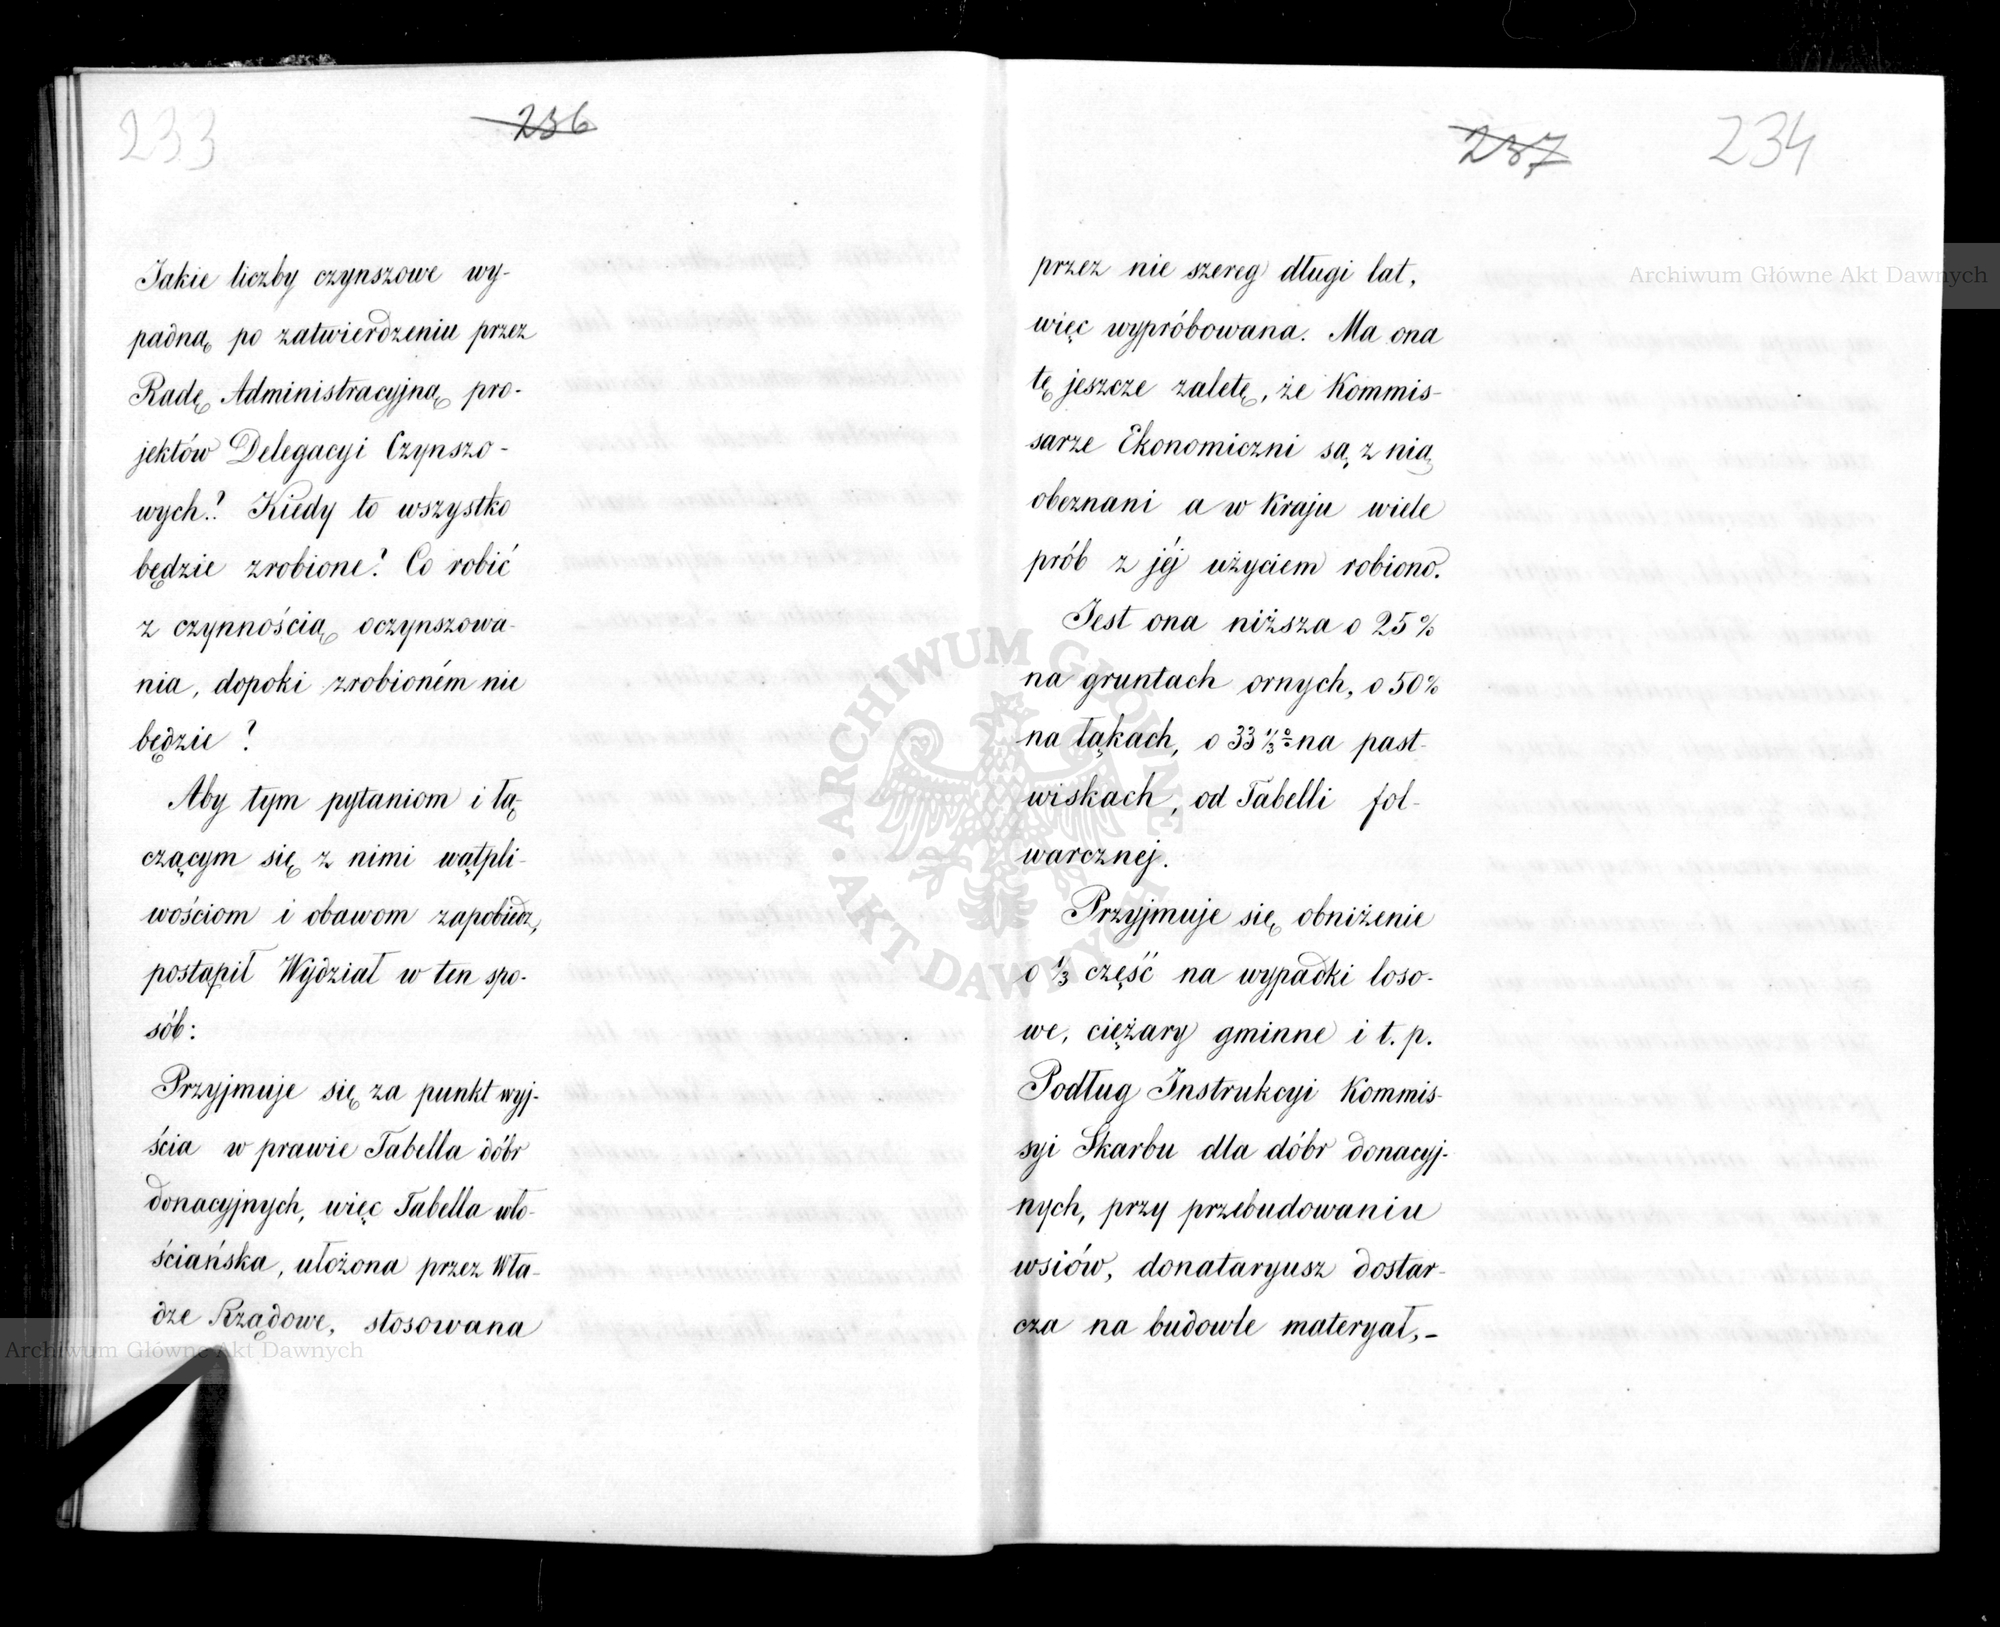 233
236
Jakie liczby czynszowe wy-
padną po zatwierdzeniu przez
Radę Administracyjną pro-
jektów Delegacyi Czynszo-
wych? Kiedy to wszystko
będzie zrobione? Co robić
z czynnością oczynszowa-
nia, dopoki zrobioném nie
będzie?
Aby tym pytaniom i łą-
czącym się z nimi wątpli-
wościom i obawom zapobiedz,
postąpił Wydział w ten spo-
sób:
Przyjmuje się za punkt wyj-
ścia w prawie Tabella dóbr
donacyjnych, więc Tabella wło-
ściańska, ułożona przez Wła-
dze Rządowe, stosowana
237
234
przez nie szereg długi lat,
więc wypróbowana. Ma ona
tę jeszcze zaletę, że Kommis-
sarze Ekonomiczni są z nią
obeznani a w Kraju wiele
prób z jéj użyciem robiono.
Jest ona niższa o 25%
na gruntach ornych, o 50%
na łąkach, o 33 1/3 % na past-
wiskach, od Tabelli fol-
warcznej.
Przyjmuje się obniżenie
o 1/3 część na wypadki loso-
we, ciężary gminne i t. p.
Podług Instrukcyi Kommis-
syi Skarbu dla dóbr donacyj-
nych, przy przebudowaniu
wsiów, donataryusz dostar-
cza na budowle materyał,-
Archiwum Główne Akt Dawnych
ARCHIWUM GŁÓWNE
AKT DAWNYCH
Archiwum Główne Akt Dawnych